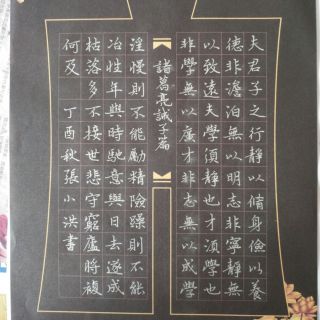 夫君子之行靜以脩身儉以養
德非澹泊無以明志非寧靜無
以致遠夫學須靜也才須學也
非學無以廣才非志無以成學
諸葛亮誡子篇
淫慢則不能勵精險躁則不能
冶性年與時馳意與日去遂成
枯落多不接世悲守窮廬將複
何及 丁酉秋張小洪書